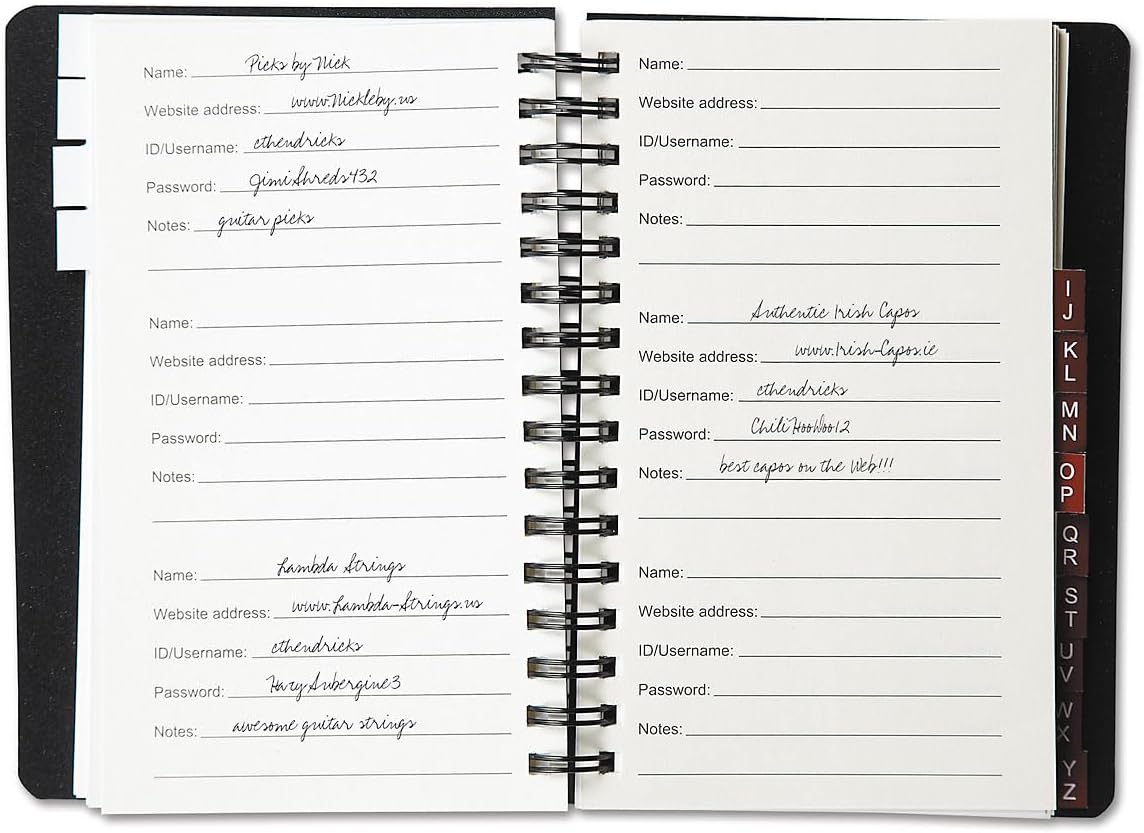 Name: Picks by Nick
Website address: www.Nickleby.us
ID/Username: cthendricks
Password: JimiShreds432
Notes: guitar picks
Name:
Website address:
ID/Username:
Password:
Notes:
Name: Lambda Strings
Website address: www.Lambda-Strings.us
ID/Username: cthendricks
Password: HazyAubergine3
Notes: awesome guitar strings
Name:
Website address:
ID/Username:
Password:
Notes:
Name: Authentic Irish Capos
Website address: www.Irish-Capos.ie
ID/Username: cthendricks
Password: ChiliHooWoo12
Notes: best capos on the Web!!!
Name:
Website address:
ID/Username:
Password:
Notes:
I
J
K
L
M
N
O
P
Q
R
S
T
U
V
W
X
Y
Z